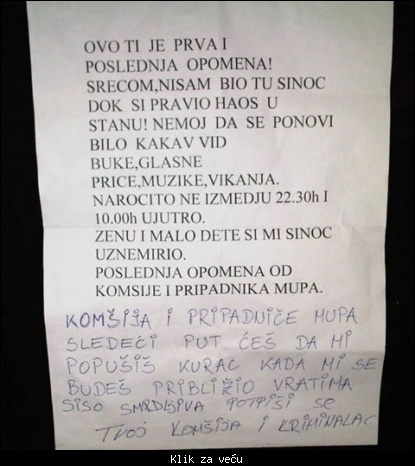 OVO TI JE PRVA I
POSLEDNJA OPOMENA!
SRECOM,NISAM BIO TU SINOC
DOK SI PRAVIO HAOS U
STANU! NEMOJ DA SE PONOVI
BILO KAKAV VID
BUKE,GLASNE
PRICE,MUZIKE,VIKANJA.
NAROCITO NE IZMEDJU 22.30h I
10.00h UJUTRO.
ZENU I MALO DETE SI MI SINOC
UZNEMIRIO.
POSLEDNJA OPOMENA OD
KOMSIJE I PRIPADNIKA MUPA.
KOMŠIJA I PRIPADNIČE MUPA
SLEDEĆI PUT ĆEŠ DA MI
POPUŠIŠ KURAC KADA MI SE
BUDEŠ PRIBLIŽIO VRATIMA
SISO SMRDLJIVA POTPIŠI SE
TVOJ KOMŠIJA I KRIMINALAC
Klik za veću